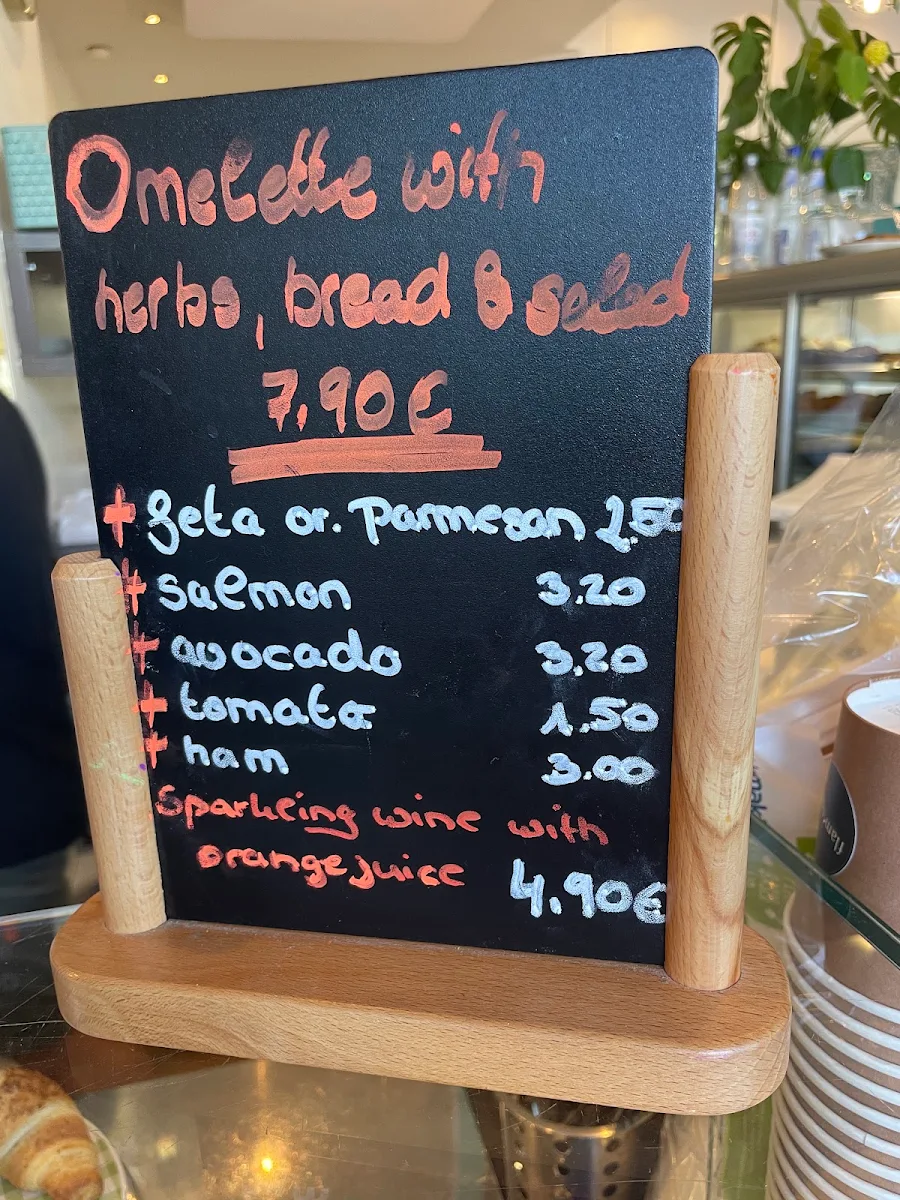 Omelette with
herbs, bread & salad
7,90€
+ feta or. Parmesan 2.50
+ salmon 3.20
+ avocado 3.20
+ tomato 1.50
+ ham 3.00
Sparkling wine with
orange juice 4.90€